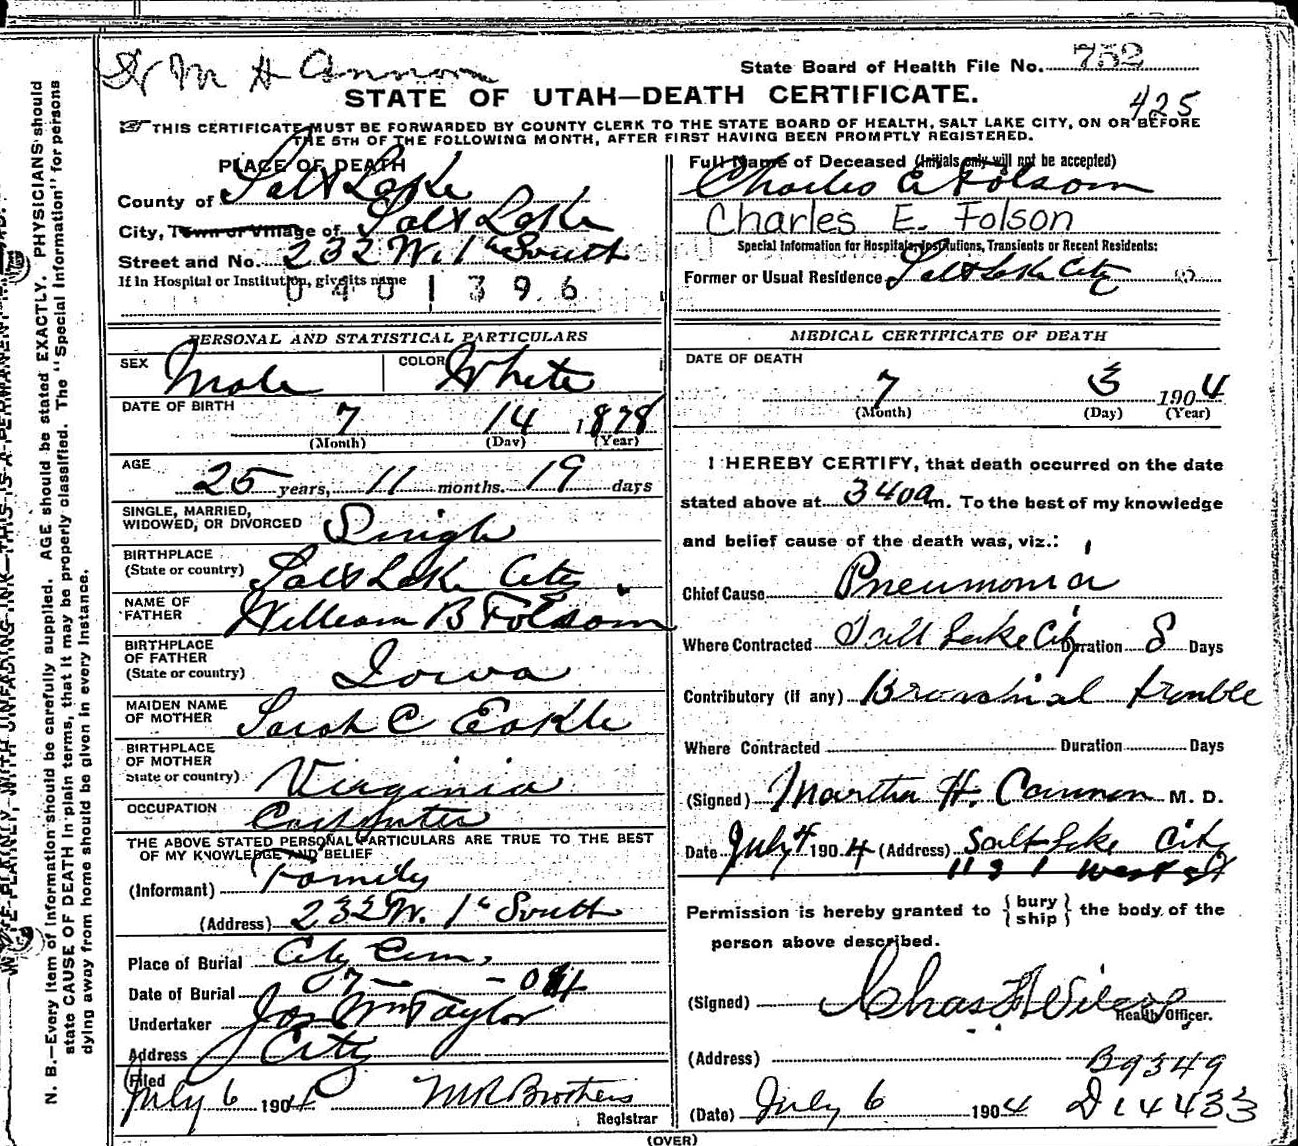 M H Cannon
State Board of Health File No. 752
STATE OF UTAH—DEATH CERTIFICATE.
425
THIS CERTIFICATE MUST BE FORWARDED BY COUNTY CLERK TO THE STATE BOARD OF HEALTH, SALT LAKE CITY, ON OR BEFORE
THE 5TH OF THE FOLLOWING MONTH, AFTER FIRST HAVING BEEN PROMPTLY REGISTERED.
PLACE OF DEATH
County of Salt Lake
City, Town or Village of Salt Lake
Street and No. 232 W. 1st South
If in Hospital or Institution, give its name
0401396
Full Name of Deceased (Initials only will not be accepted)
Charles E Folsom
Charles E. Folson
Special Information for Hospitals, Institutions, Transients or Recent Residents:
Former or Usual Residence Salt Lake City
PERSONAL AND STATISTICAL PARTICULARS
SEX Male COLOR White
DATE OF BIRTH
7 14 1878
(Month) (Day) (Year)
AGE
25 years, 11 months. 19 days
SINGLE, MARRIED,
WIDOWED, OR DIVORCED Single
BIRTHPLACE
(State or country) Salt Lake City
NAME OF
FATHER William B Folsom
BIRTHPLACE
OF FATHER
(State or country) Iowa
MAIDEN NAME
OF MOTHER Sarah C Eakle
BIRTHPLACE
OF MOTHER
State or country) Virginia
OCCUPATION Carpenter
THE ABOVE STATED PERSONAL PARTICULARS ARE TRUE TO THE BEST
OF MY KNOWLEDGE AND BELIEF
(Informant) Family
(Address) 232 W. 1st South
Place of Burial City Cem.
Date of Burial 07 — - 04
Undertaker Jos Wm Taylor
Address City
Filed
July 6 1904 M R Brothers
Registrar
MEDICAL CERTIFICATE OF DEATH
DATE OF DEATH
7 3 1904
(Month) (Day) (Year)
I HEREBY CERTIFY, that death occurred on the date
stated above at 340a m. To the best of my knowledge
and belief cause of the death was, viz.:
Chief Cause Pneumonia
Where Contracted Salt Lake City Duration 8 Days
Contributory (if any) Bronchial trouble
Where Contracted Duration Days
(Signed) Martha H. Cannon M. D.
Date July 4 1904 (Address) Salt Lake City
Permission is hereby granted to {bury ship} the body of the
person above described.
(Signed) Chas
Health Officer.
(Address)
B9349
(Date) July 6 1904 D14433
(OVER)
N. B.—Every item of information should be carefully supplied. AGE should be stated EXACTLY. PHYSICIANS should
state CAUSE OF DEATH in plain terms, that it may be properly classified. The "Special Information" for persons
dying away from home should be given in every instance.
WRITE PLAINLY, WITH UNFADING INK—THIS IS A PERMANENT